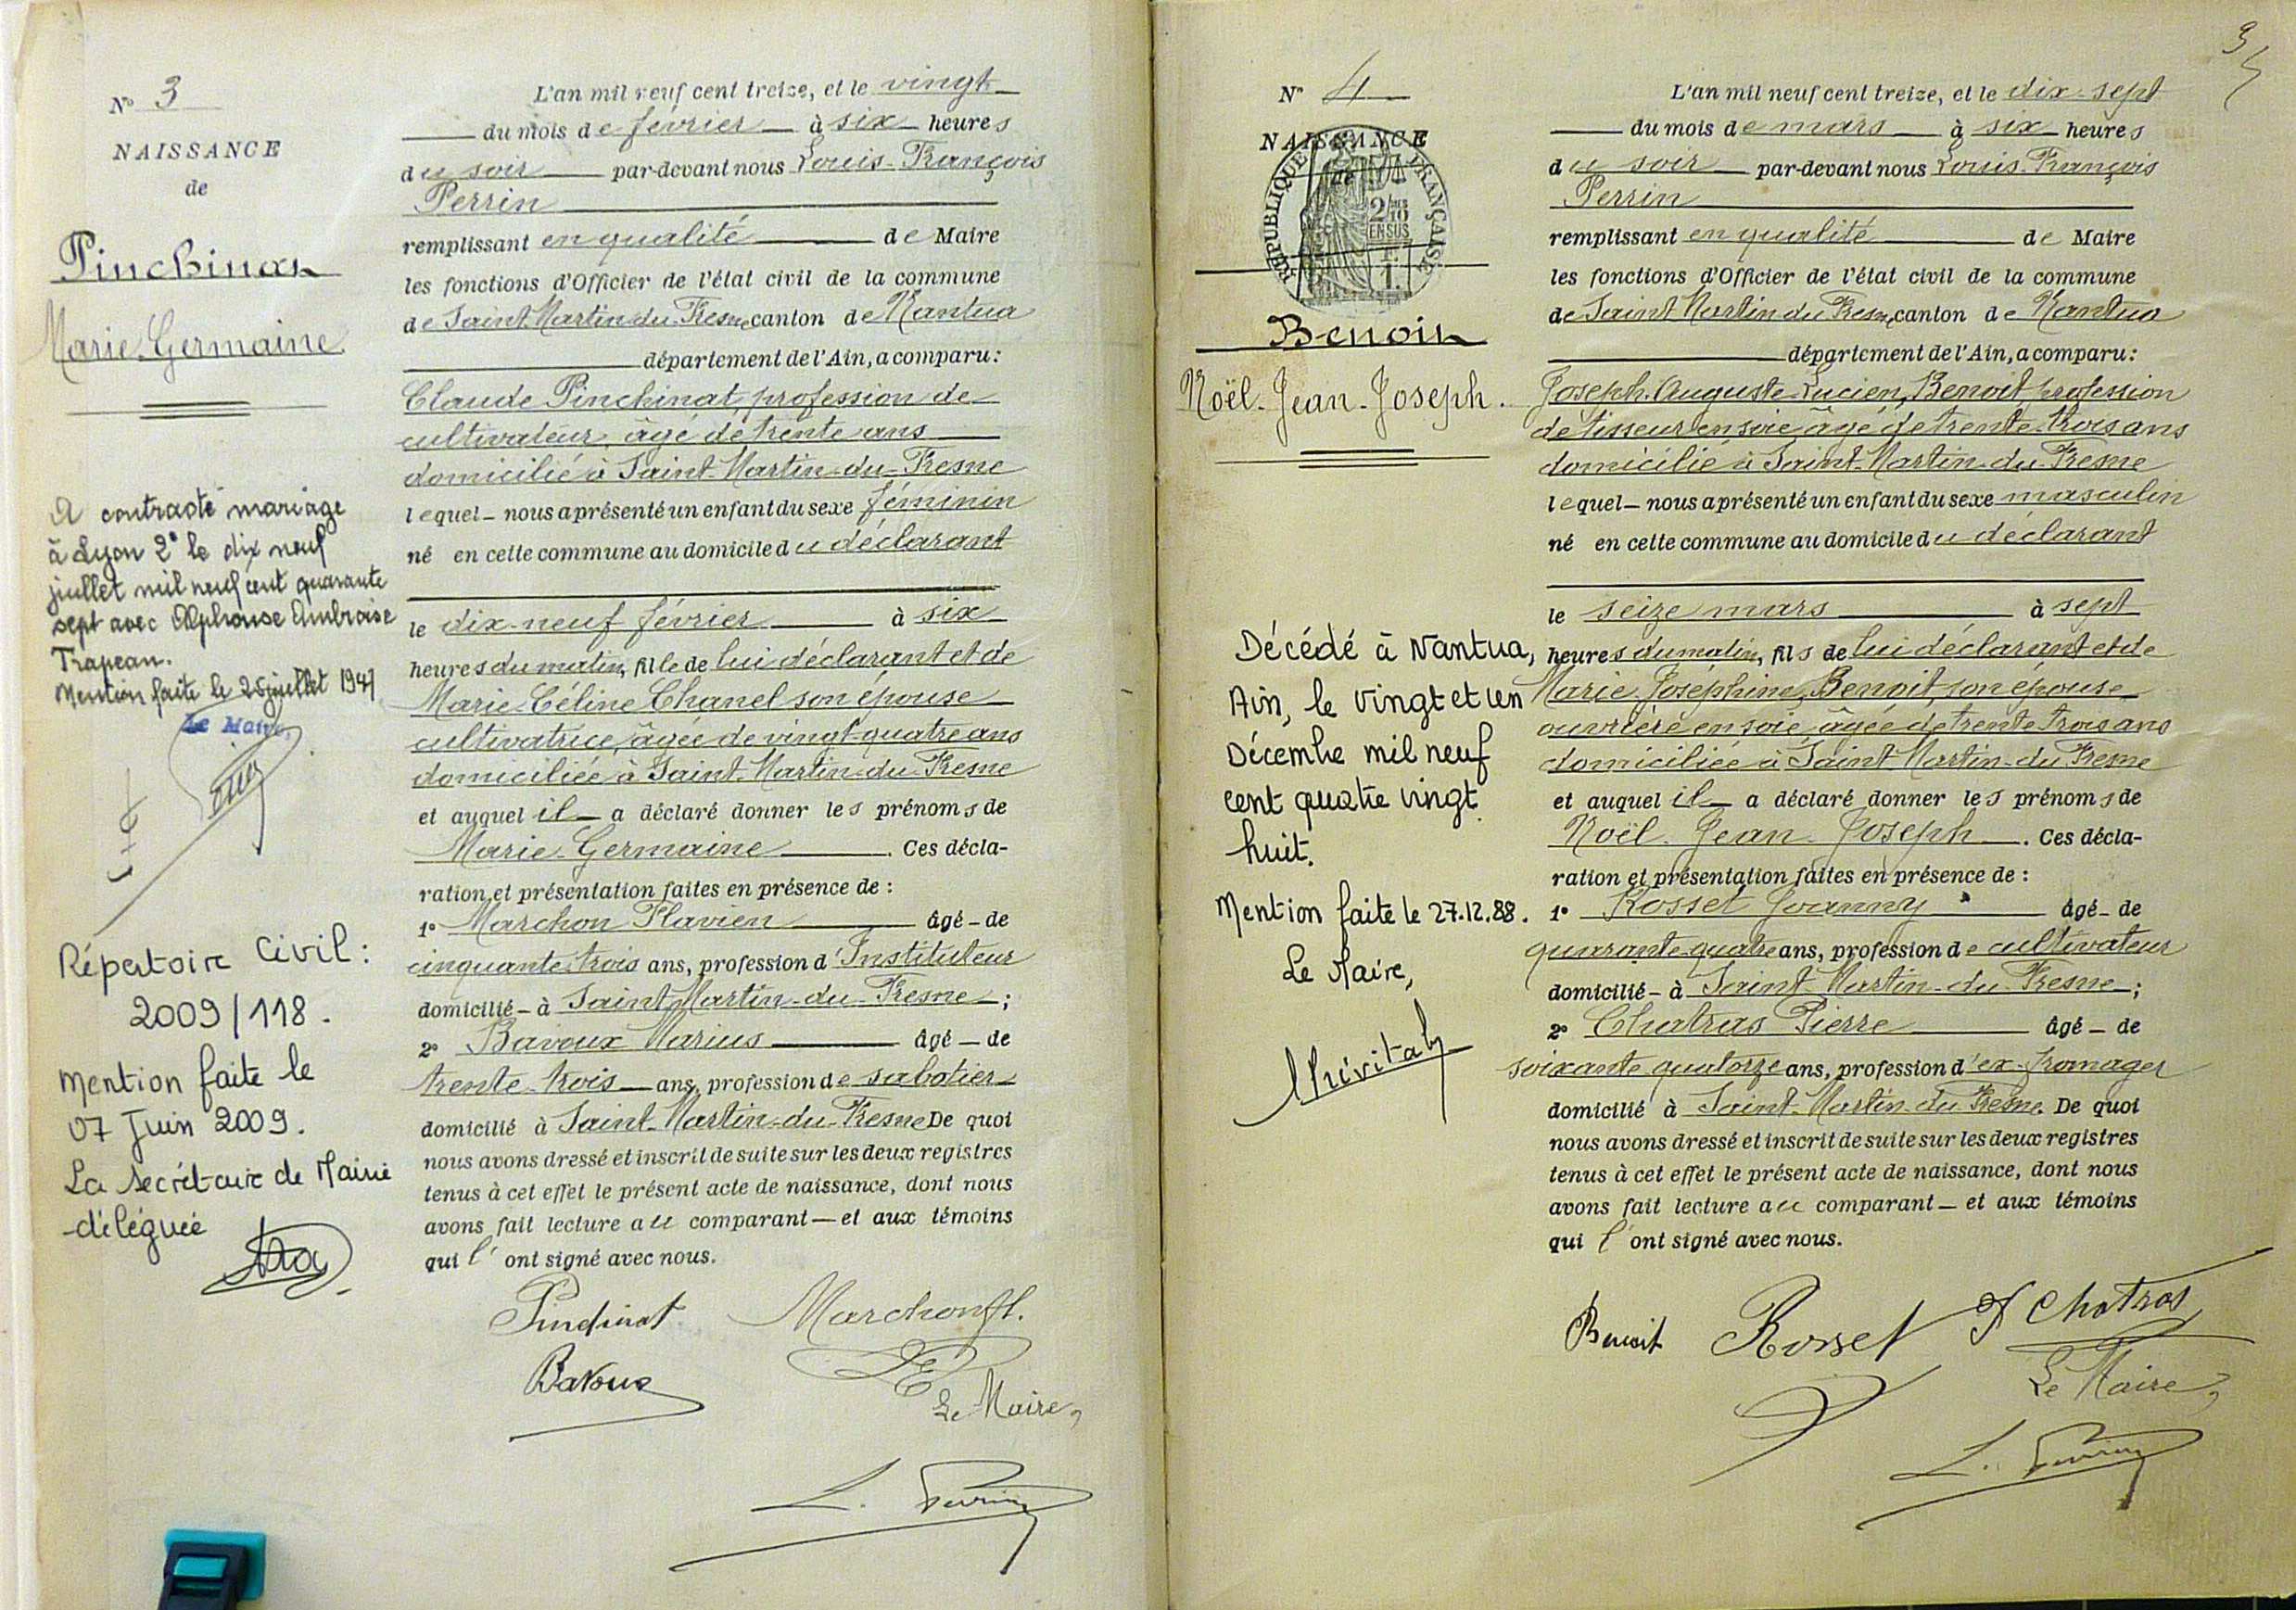 N° 3
NAISSANCE
de
Pinchinat
Marie-Germaine
A contracté mariage
à Lyon 2° le dix neuf
juillet mil neuf cent quarante
sept avec Alphonse Ambroise
Trapeau.
Mention faite le 25 juillet 1947
Le Maire,
Répertoire Civil :
2009/118.
Mention faite le
07 Juin 2009.
La Secrétaire de Mairie
déléguée
L'an mil neuf cent treize, et le vingt
du mois de février à six heures
du soir par-devant nous Louis-François
Perrin
remplissant en qualité de Maire
les fonctions d'Officier de l'état civil de la commune
de Saint-Martin-du-Fresne canton de Nantua
département de l'Ain, a comparu :
Claude Pinchinat, profession de
cultivateur, âgé de trente ans
domicilié à Saint-Martin-du-Fresne
lequel nous a présenté un enfant du sexe féminin
né en cette commune au domicile du déclarant
le dix-neuf février à six
heures du matin, fille de lui déclarant et de
Marie-Céline Chanel son épouse
cultivatrice, âgée de vingt-quatre ans
domiciliée à Saint-Martin-du-Fresne
et auquel il a déclaré donner les prénoms de
Marie-Germaine. Ces décla-
ration et présentation faites en présence de :
1° Marchon Flavien âgé de
cinquante-trois ans, profession d'Instituteur
domicilié à Saint-Martin-du-Fresne ;
2° Bavoux Marius âgé de
trente-trois ans, profession de sabotier
domicilié à Saint-Martin-du-Fresne De quoi
nous avons dressé et inscrit de suite sur les deux registres
tenus à cet effet le présent acte de naissance, dont nous
avons fait lecture au comparant et aux témoins
qui l'ont signé avec nous.
Pinchinat Marchon fl.
Bavoux
Le Maire,
L. Perrin
3
N° 4
NAISSANCE
de
REPUBLIQUE FRANÇAISE
2/10
EN SUS
1 F.
Benoit
Noël-Jean-Joseph.
Décédé à Nantua,
Ain, le vingt et un
Décembre mil neuf
cent quatre vingt
huit.
Mention faite le 27.12.88.
Le Maire,
L'an mil neuf cent treize, et le dix-sept
du mois de mars à six heures
du soir par-devant nous Louis-François
Perrin
remplissant en qualité de Maire
les fonctions d'Officier de l'état civil de la commune
de Saint-Martin-du-Fresne, canton de Nantua
département de l'Ain, a comparu :
Joseph-Auguste-Lucien, Benoit, profession
de tisseur en soie, âgé de trente-trois ans
domicilié à Saint-Martin-du-Fresne
lequel nous a présenté un enfant du sexe masculin
né en cette commune au domicile du déclarant
le seize mars à sept
heures du matin, fils de lui déclarant et de
Marie-Joséphine, Benoit, son épouse
ouvrière en soie, âgée de trente-trois ans
domiciliée à Saint-Martin-du-Fresne
et auquel il a déclaré donner les prénoms de
Noël-Jean-Joseph. Ces décla-
ration et présentation faites en présence de :
1° Rosset Joanny âgé de
quarante-quatre ans, profession de cultivateur
domicilié à Saint-Martin-du-Fresne ;
2° Chatras Pierre âgé de
soixante-quatorze ans, profession d'ex-fromager
domicilié à Saint-Martin-du-Fresne. De quoi
nous avons dressé et inscrit de suite sur les deux registres
tenus à cet effet le présent acte de naissance, dont nous
avons fait lecture au comparant et aux témoins
qui l'ont signé avec nous.
Benoit Rosset P Chatras
Le Maire,
L. Perrin